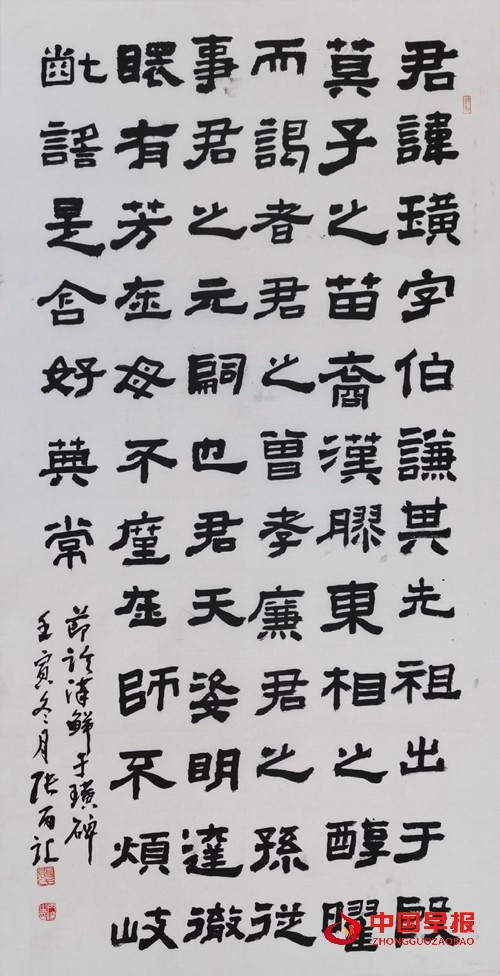 君諱璜字伯謙其先祖出于殷
萁子之苗裔漢膠東相之醇曜
而謁者君之曾孝廉君之孫從
事君之元嗣也君天姿明達徹
有芳在母不瘽在師不煩岐
齔謠是含好典常
节临漢鮮于璜碑
壬寅冬月張百
中国早报
ZHONGGUOZAOBAO